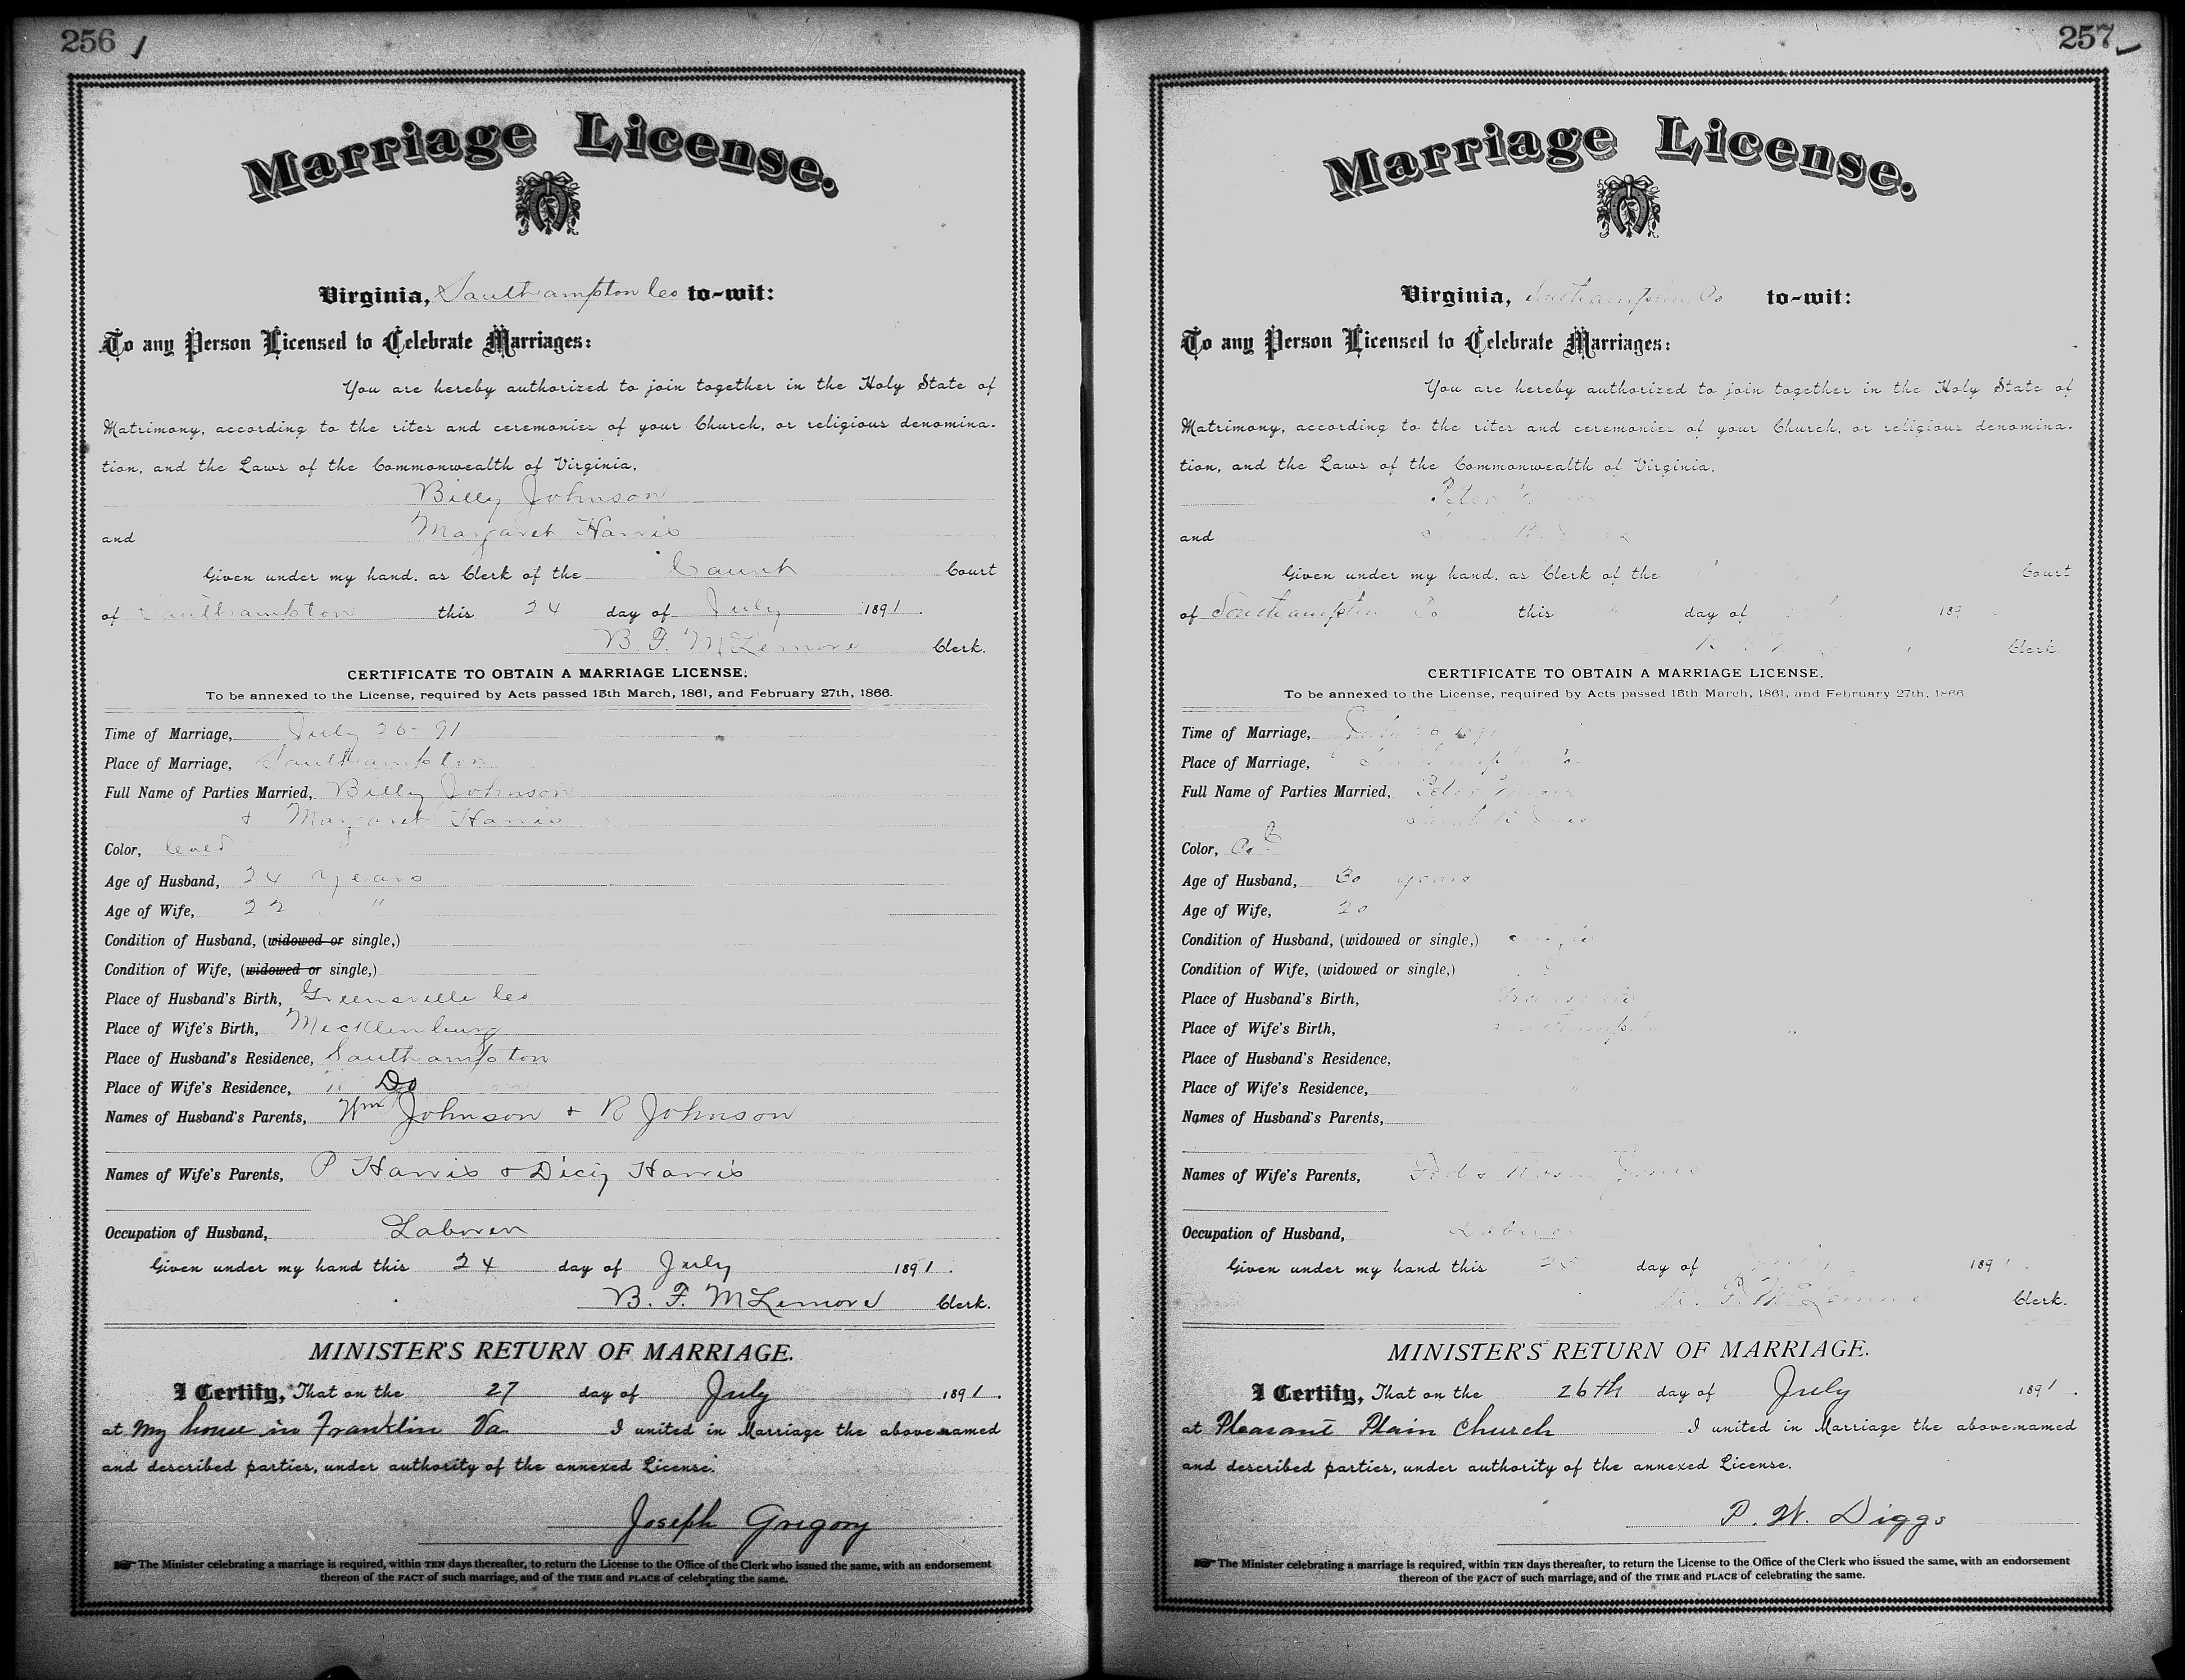 256
Marriage License.
Virginia, Southampton Co to-wit:
To any Person Licensed to Celebrate Marriages:
You are hereby authorized to join together in the Holy State of
Matrimony, according to the rites and ceremonies of your Church, or religious denomina-
tion, and the Laws of the Commonwealth of Virginia,
Billy Johnson
and Margaret Harris
Given under my hand, as Clerk of the County Court
of Southampton this 24 day of July 1891.
B. F. McLemore Clerk.
CERTIFICATE TO OBTAIN A MARRIAGE LICENSE:
To be annexed to the License, required by Acts passed 15th March, 1861, and February 27th, 1866.
Time of Marriage, July 26-91
Place of Marriage, Southampton
Full Name of Parties Married, Billy Johnson
& Margaret Harris
Color, Cold
Age of Husband, 24 years
Age of Wife, 22 "
Condition of Husband, (widowed or single,)
Condition of Wife, (widowed or single,)
Place of Husband's Birth, Greensville Co
Place of Wife's Birth, Mecklenburg
Place of Husband's Residence, Southampton
Place of Wife's Residence, Do
Names of Husband's Parents, Wm Johnson & R Johnson
Names of Wife's Parents, P Harris & Dicy Harris
Occupation of Husband, Laborer
Given under my hand this 24 day of July 1891.
B. F. McLemore Clerk.
MINISTER'S RETURN OF MARRIAGE.
I Certify, That on the 27 day of July 1891.
at My house in Franklin Va I united in Marriage the above-named
and described parties, under authority of the annexed License.
Joseph Gregory
The Minister celebrating a marriage is required, within TEN days thereafter, to return the License to the Office of the Clerk who issued the same, with an endorsement
thereon of the FACT of such marriage, and of the TIME and PLACE of celebrating the same.
257
Marriage License.
Virginia, Southampton Co to-wit:
To any Person Licensed to Celebrate Marriages:
You are hereby authorized to join together in the Holy State of
Matrimony, according to the rites and ceremonies of your Church, or religious denomina-
tion, and the Laws of the Commonwealth of Virginia,
Peter
and
Given under my hand, as Clerk of the Court
of Southampton Co this day of 189
Clerk.
CERTIFICATE TO OBTAIN A MARRIAGE LICENSE.
To be annexed to the License, required by Acts passed 15th March, 1861, and February 27th, 1866
Time of Marriage, July 1891
Place of Marriage, Southampton Co
Full Name of Parties Married, Peter
Sarah
Color, Cod
Age of Husband, 30 years
Age of Wife, 20
Condition of Husband, (widowed or single,) single
Condition of Wife, (widowed or single,)
Place of Husband's Birth,
Place of Wife's Birth, Southampton
Place of Husband's Residence,
Place of Wife's Residence,
Names of Husband's Parents,
Names of Wife's Parents, Jones
Occupation of Husband, Laborer
Given under my hand this day of 1891.
B. F. McLemore Clerk.
MINISTER'S RETURN OF MARRIAGE.
I Certify, That on the 26th day of July 1891.
at Pleasant Plain Church I united in Marriage the above-named
and described parties, under authority of the annexed License.
P. W. Diggs
The Minister celebrating a marriage is required, within TEN days thereafter, to return the License to the Office of the Clerk who issued the same, with an endorsement
thereon of the FACT of such marriage, and of the TIME and PLACE of celebrating the same.